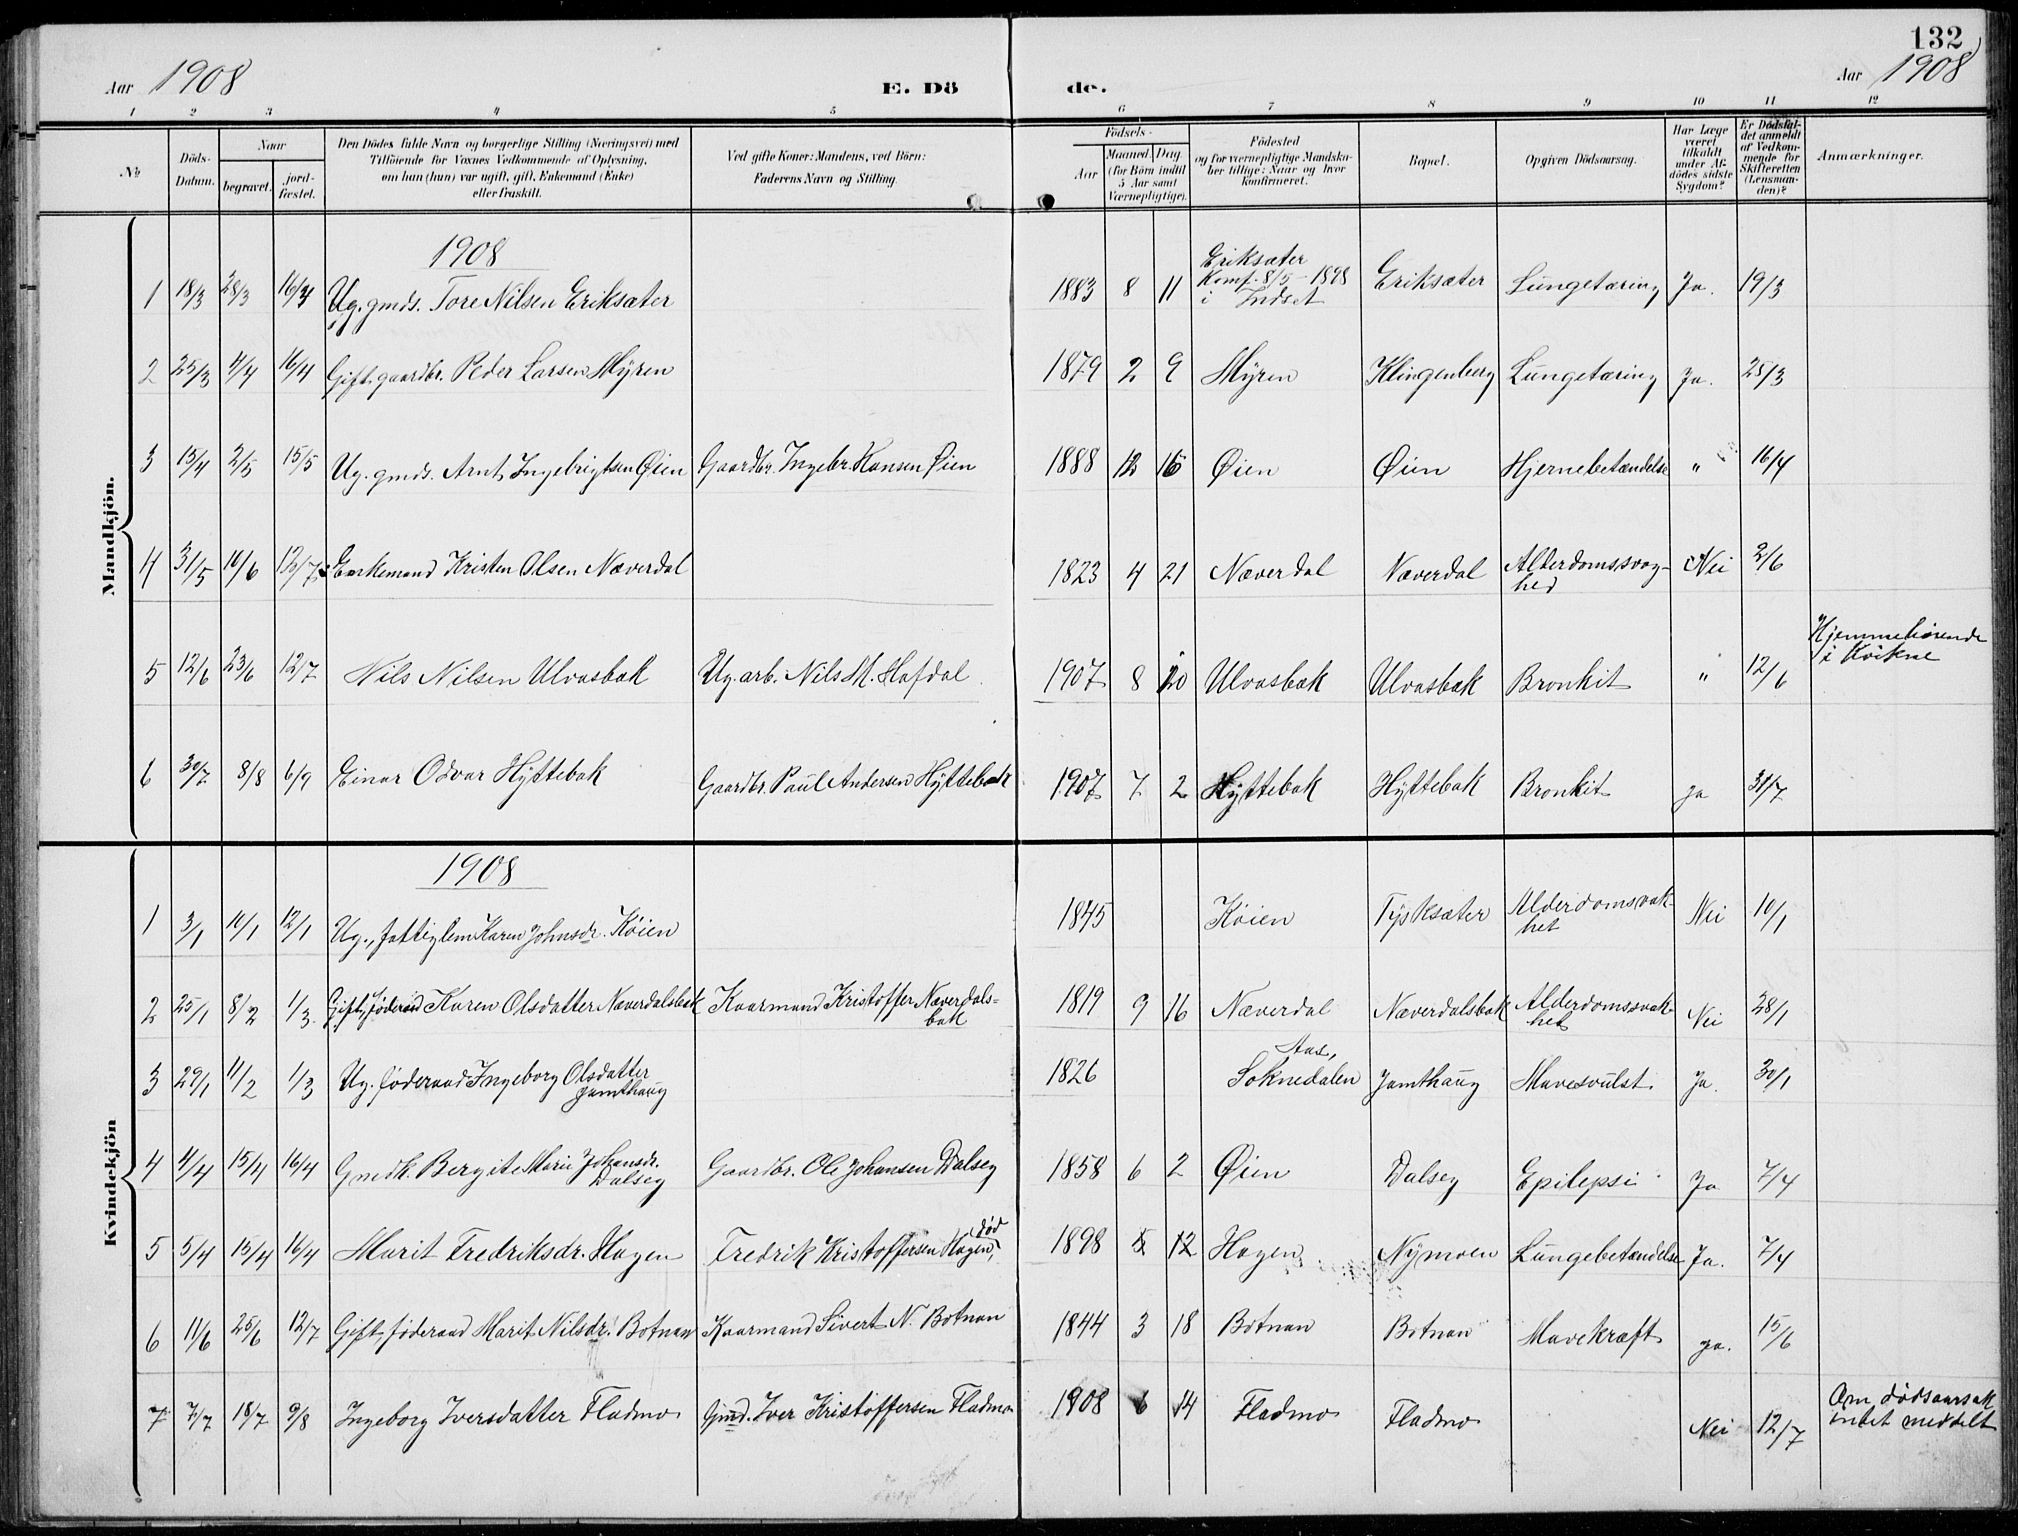 132
Aar 1908 E. Dö de. Aar 1908
1 2 3 4 5 6 7 8 9 10 11 12
No
Döds-Datum.
Naar
begravet. jord-fæstet.
Den Dödes fulde Navn og borgerlige Stilling (Næringsvei) med
Tilföiende for Voxnes Vedkommende af Oplysning,
om han (hun) var ugift, gift, Enkemand (Enke)
eller fraskilt.
Ved gifte Koner: Mandens, ved Börn:
Faderens Navn og Stilling.
Födsels-
Aar
Maaned. Dag
(for Börn indtil
5 Aar samt
Værnepligtige).
Födested
og for værnepligtige Mandska-
ber tillige: Naar og hvor
konfirmeret.
Bopæl.
Opgiven Dödsaarsag.
Har Læge
været
tilkaldt
under Af-
dödes sidste
Sygdom?
Er Dödsfal-
det anmeldt
af Vedkom-
mende for
Skifteretten
(Lensman-
den)?
Anmærkninger.
Mandkjön.
1908
1 18/3 28/3 16/4 Ug. gmds. Tore Nilsen Eriksæter 1883 8 11 Eriksæter Konf. 8/5-1898 i Indset Eriksæter Lungetæring Ja. 19/3
2 25/3 4/4 16/4 Gift, gaardbr. Peder Larsen Myren 1879 2 9 Myren Klingenberg Lungetæring Ja. 25/3
3 15/4 2/5 15/5 Ug. gmds. Arnt Ingebrigtsen Øien Gaardbr. Ingebr. Hansen Øien 1888 12 15 Øien Øien Hjernebetændelse " 16/4
4 31/5 10/6 12/7 Enkemand Kristen Olsen Næverdal 1823 4 21 Næverdal Næverdal Alderdomssvag-hed Nei 2/6
5 12/6 23/6 12/7 Nils Nilsen Ulvasbæk Ug. arb. Nils M. Hafdal 1907 8 20 Ulvasbæk Ulvasbæk Bronkit " 12/6 Hjemmehørende i Kvikne
6 30/7 8/8 6/9 Einar Odvar Hyttebak Gaardbr. Paul Andersen Hyttebak 1907 7 2 Hyttebak Hyttebak Bronkit ja 31/7
Kvindekjön
1908
1 3/1 10/1 12/1 Ug., fattiglem Karen Johnsdr. Køien 1845 Køien Tysksæter Alderdomsvak-het Nei 10/1
2 25/1 8/2 1/3 Gift, føderaad Karen Olsdatter Næverdalsbak Kaarmand Kristoffer Næverdals-bak 1819 9 16 Næverdal Næverdalsbak Alderdomssvak-het Nei 28/1
3 29/1 11/2 1/3 Ug. føderaad Ingeborg Olsdatter Jamthaug 1826 Aas, Soknedalen Jamthaug Mavesvulst Ja. 30/1
4 4/4 15/4 16/4 Gmdk. Bergite Marie Johansdr. Dalseg Gaardbr. Ole Johansen Dalseg 1858 6 2 Øien Dalseg Epilepsi Ja 7/4
5 5/4 15/4 16/4 Marit Fredriksdr. Hagen Fredrik Kristoffersen Hagen, død 1898 5 12 Hagen Nymoen Lungebetændelse Ja. 7/4
6 11/6 25/6 12/7 Gift, føderaad Marit Nilsdr. Botnan Kaarmand Sivert N. Botnan 1844 3 18 Botnan Botnan Mavekræft ja. 15/6
7 7/7 18/7 9/8 Ingeborg Iversdatter Fladmo Gmd. Iver Kristoffersen Fladmo 1908 6 14 Fladmo Fladmo Nei 12/7 Om dødsaarsak intet meddelt